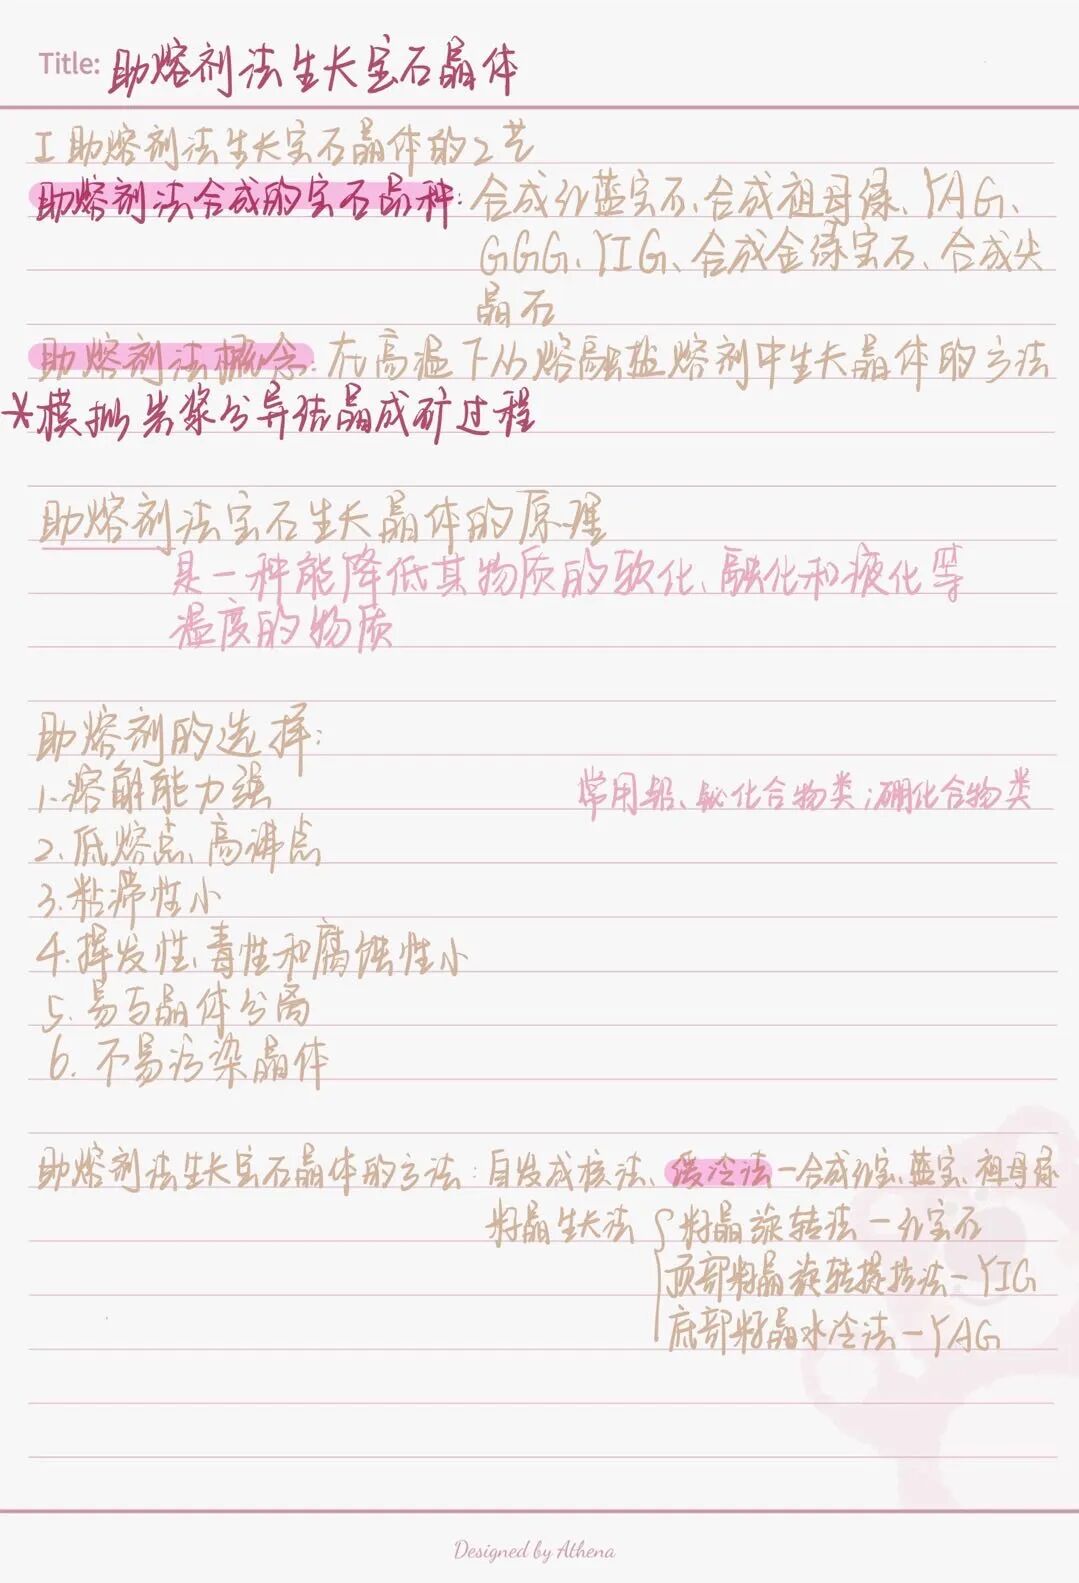 Title: 助熔剂法生长宝石晶体
I 助熔剂法生长宝石晶体的工艺
助熔剂法合成的宝石品种: 合成红蓝宝石、合成祖母绿、YAG、
GGG、YIG、合成金绿宝石、合成尖
晶石
助熔剂法概念: 在高温下从熔融盐熔剂中生长晶体的方法
*模拟岩浆分异结晶成矿过程
助熔剂法宝石生长晶体的原理
是一种能降低其物质的软化、融化和液化等
温度的物质
助熔剂的选择:
1.溶解能力强 常用铅、铋化合物类;硼化合物类
2.低熔点、高沸点
3.粘滞性小
4.挥发性、毒性和腐蚀性小
5.易与晶体分离
6.不易污染晶体
助熔剂法生长宝石晶体的方法: 自发成核法、缓冷法—合成红宝、蓝宝、祖母绿
籽晶生长法 { 籽晶旋转法—红宝石
顶部籽晶旋转提拉法—YIG
底部籽晶水冷法—YAG
Designed by Athena